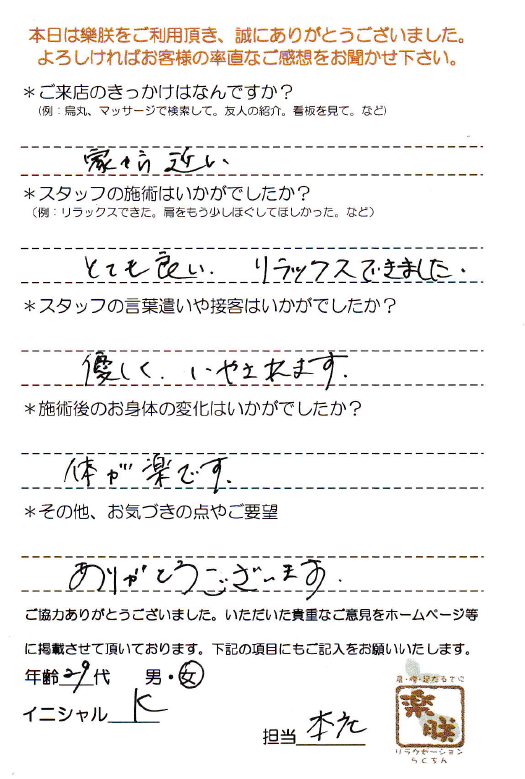 本日は樂朕をご利用頂き、誠にありがとうございました。
よろしければお客様の率直なご感想をお聞かせ下さい。
＊ご来店のきっかけはなんですか？
（例：烏丸、マッサージで検索して。友人の紹介。看板を見て。など）
家から近い
＊スタッフの施術はいかがでしたか？
（例：リラックスできた。肩をもう少しほぐしてほしかった。など）
とても良い. リラックスできました.
＊スタッフの言葉遣いや接客はいかがでしたか？
優しく. いやされます.
＊施術後のお身体の変化はいかがでしたか？
体が楽です.
＊その他、お気づきの点やご要望
ありがとうございます.
ご協力ありがとうございました。いただいた貴重なご意見をホームページ等
に掲載させて頂いております。下記の項目にもご記入をお願いいたします。
年齢 29 代 男・女
イニシャル K
担当
楽朕
リラクゼーション
らくちん